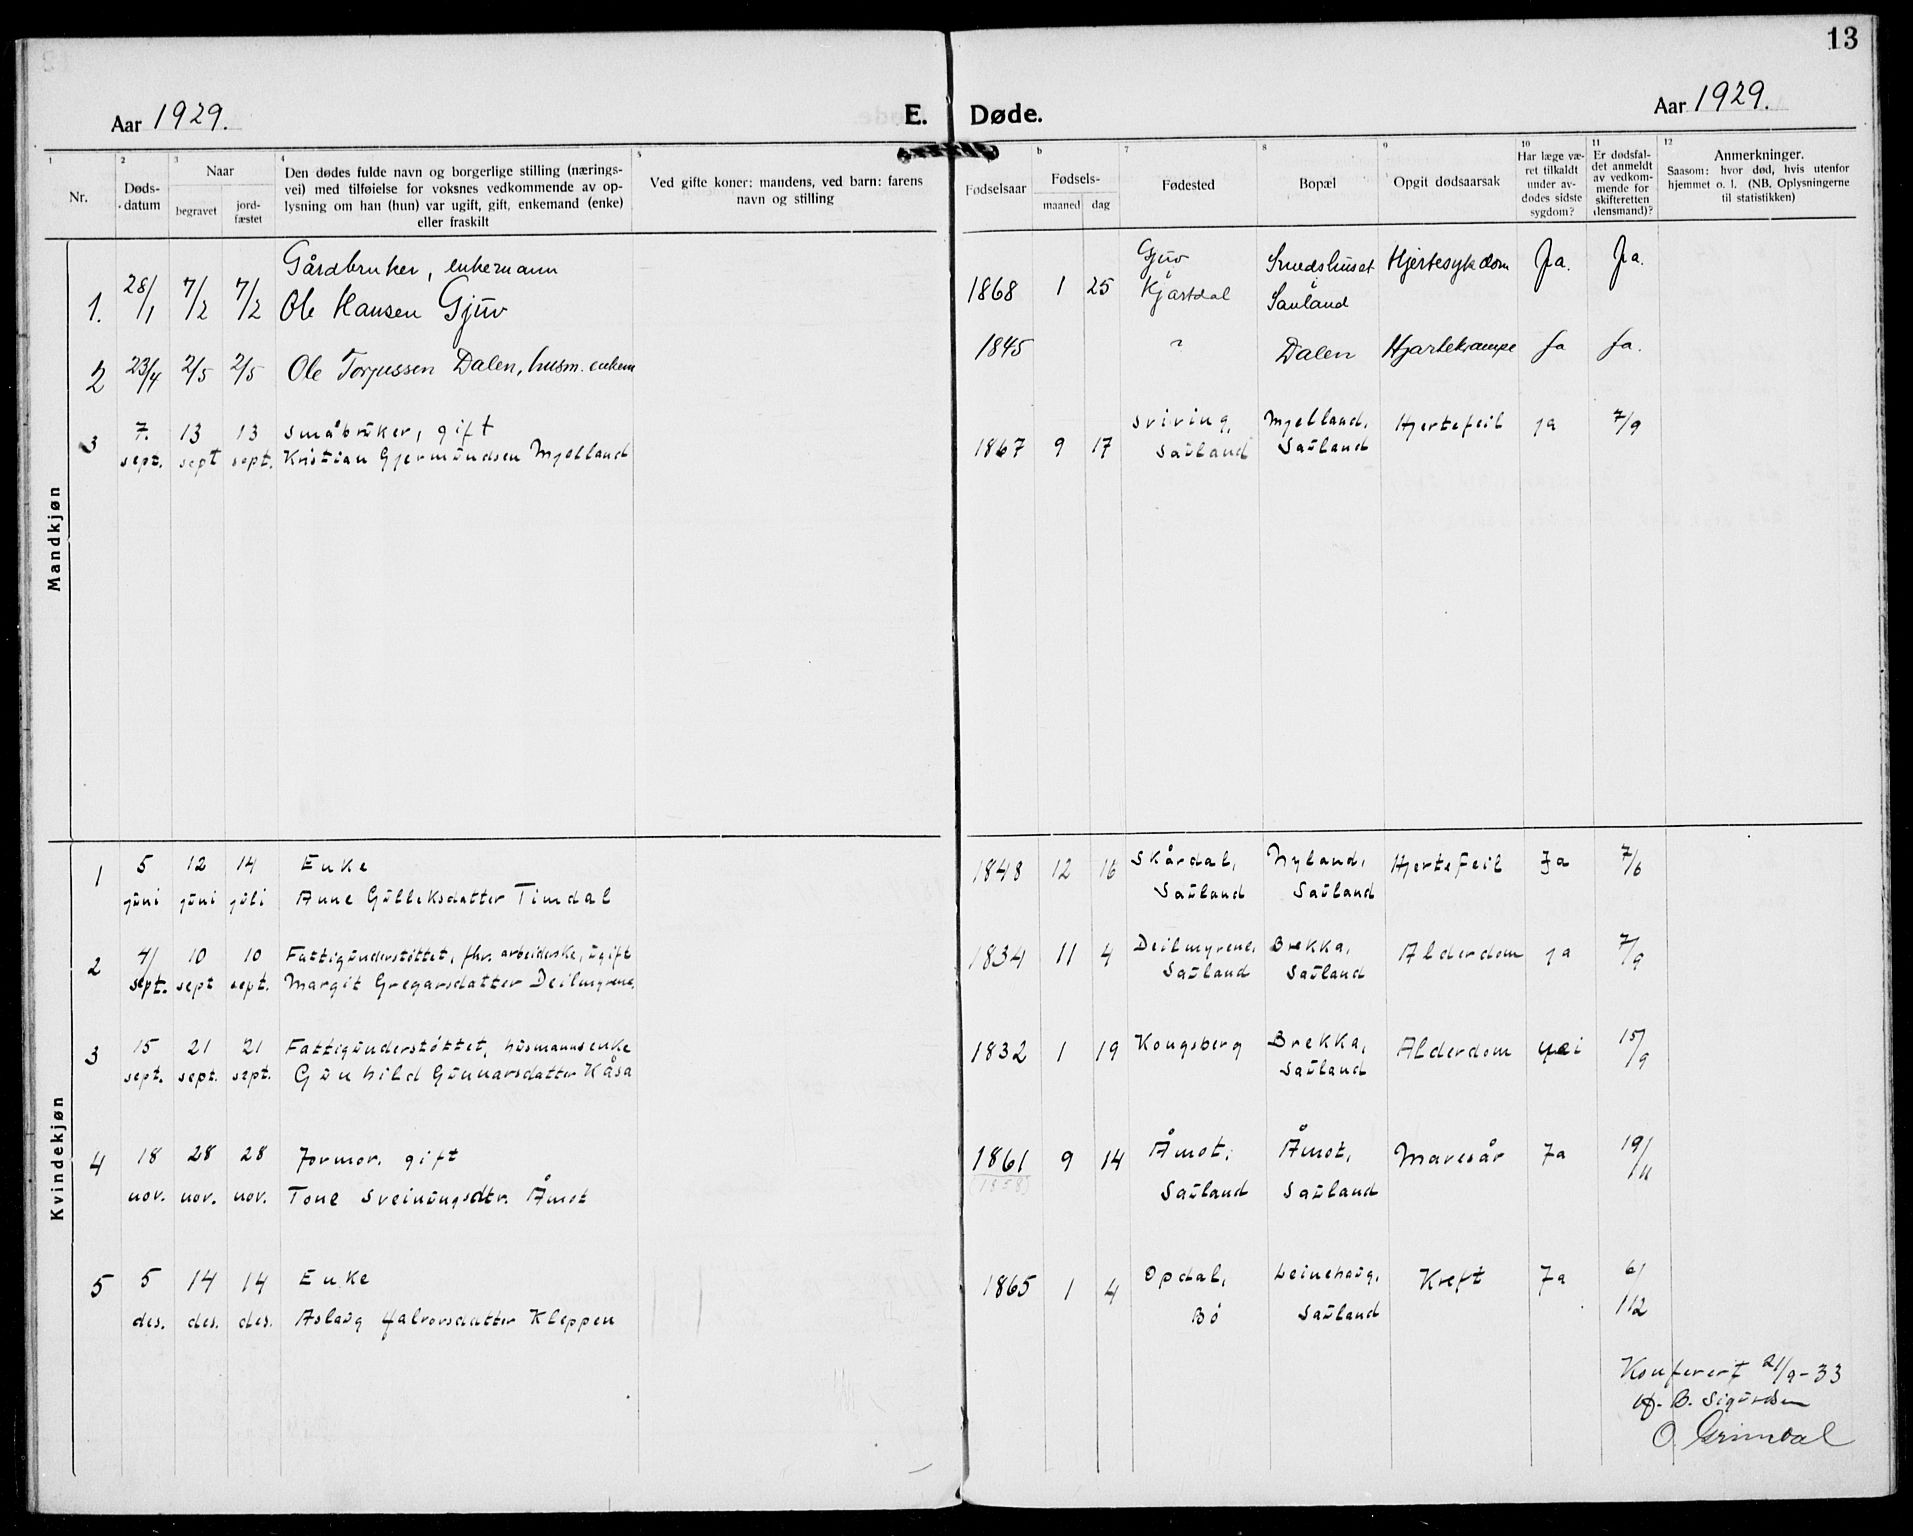 13
Aar 1929. E. Døde. Aar 1929.
1 2 3 4 5 6 7 8 9 10 11 12
Nr.
Døds-
datum
Naar
begravet
jord-
fæstet
Den dødes fulde navn og borgerlige stilling (nærings-
vei) med tilføielse for voksnes vedkommende av op-
lysning om han (hun) var ugift, gift, enkemand (enke)
eller fraskilt
Ved gifte koner: mandens, ved barn: farens
navn og stilling
Fødselsaar
Fødsels-
maaned dag
Fødested
Bopæl
Opgit dødsaarsak
Har læge væ-
ret tilkaldt
under av-
dødes sidste
sygdom?
Er dødsfal-
det anmeldt
av vedkom-
mende for
skifteretten
(lensmand)?
Anmerkninger.
Saasom: hvor død, hvis utenfor
hjemmet o. l. (NB. Oplysningerne
til statistikken)
Mandkjøn
Gårdbruker, enkemann Gjuv Smedshuset Hjertesykdom Ja. Ja.
1. 28/1 7/2 7/2 Ole Hansen Gjuv 1868 1 25 Hjartdal i Sauland
2 23/4 2/5 2/5 Ole Torjussen Dalen, husm. enkem 1845 " Dalen Hjartekrampe Ja Ja.
3 7. 13 13 småbruker, gift sviving, Mjelland, Hjertefeil ja 7/9
sept. sept sept. Kristian Gjermundsen Mjelland 1867 9 17 Sauland Sauland
Kvindekjøn
1 5 12 14 Enke 1848 12 16 Skårdal, Nyland, Hjertefeil Ja 7/6
juni juni juli Anne Gulleksdatter Timdal Sauland Sauland
2 4/ 10 10 Fattigunderstøttet, fhv. arbeiderske, ugift 1834 11 4 Deilmyrene, Brekka, Alderdom ja 7/9
sept. sept sept. Margit Gregarsdatter Deilmyrene. Sauland Sauland
3 15 21 21 Fattigunderstøttet, husmannsenke 1832 1 19 Kongsberg Brekka, Alderdom nei 15/9
sept. sept. sept. Gunhild Gunnarsdatter Kåsa Sauland
4 18 28 28 Jormor. gift 1861 9 14 Åmot, Åmot, Mavesår Ja 19/11
nov. nov. nov. Tone Sveinungsdtr. Åmot (1858) Sauland Sauland
5 5 14 14 Enke 1865 1 4 Opdal, Leinehaug, Kreft Ja 6/
des. des. des. Aslaug Halvorsdatter Kleppen Bø Sauland 112
Konferert 21/9-33
B. Sigurdsen
O. Grimdal